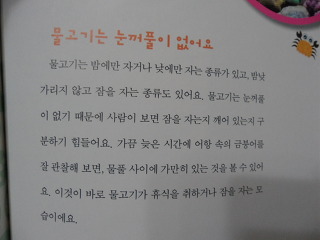 물고기는 눈꺼풀이 없어요
물고기는 밤에만 자거나 낮에만 자는 종류가 있고, 밤낮
가리지 않고 잠을 자는 종류도 있어요. 물고기는 눈꺼풀
이 없기 때문에 사람이 보면 잠을 자는지 깨어 있는지 구
분하기 힘들어요. 가끔 늦은 시간에 어항 속의 금붕어를
잘 관찰해 보면, 물풀 사이에 가만히 있는 것을 볼 수 있어
요. 이것이 바로 물고기가 휴식을 취하거나 잠을 자는 모
습이에요.